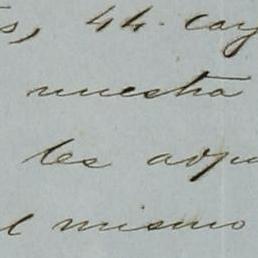 s, 44. cay
nuestra
les adju
l mismo